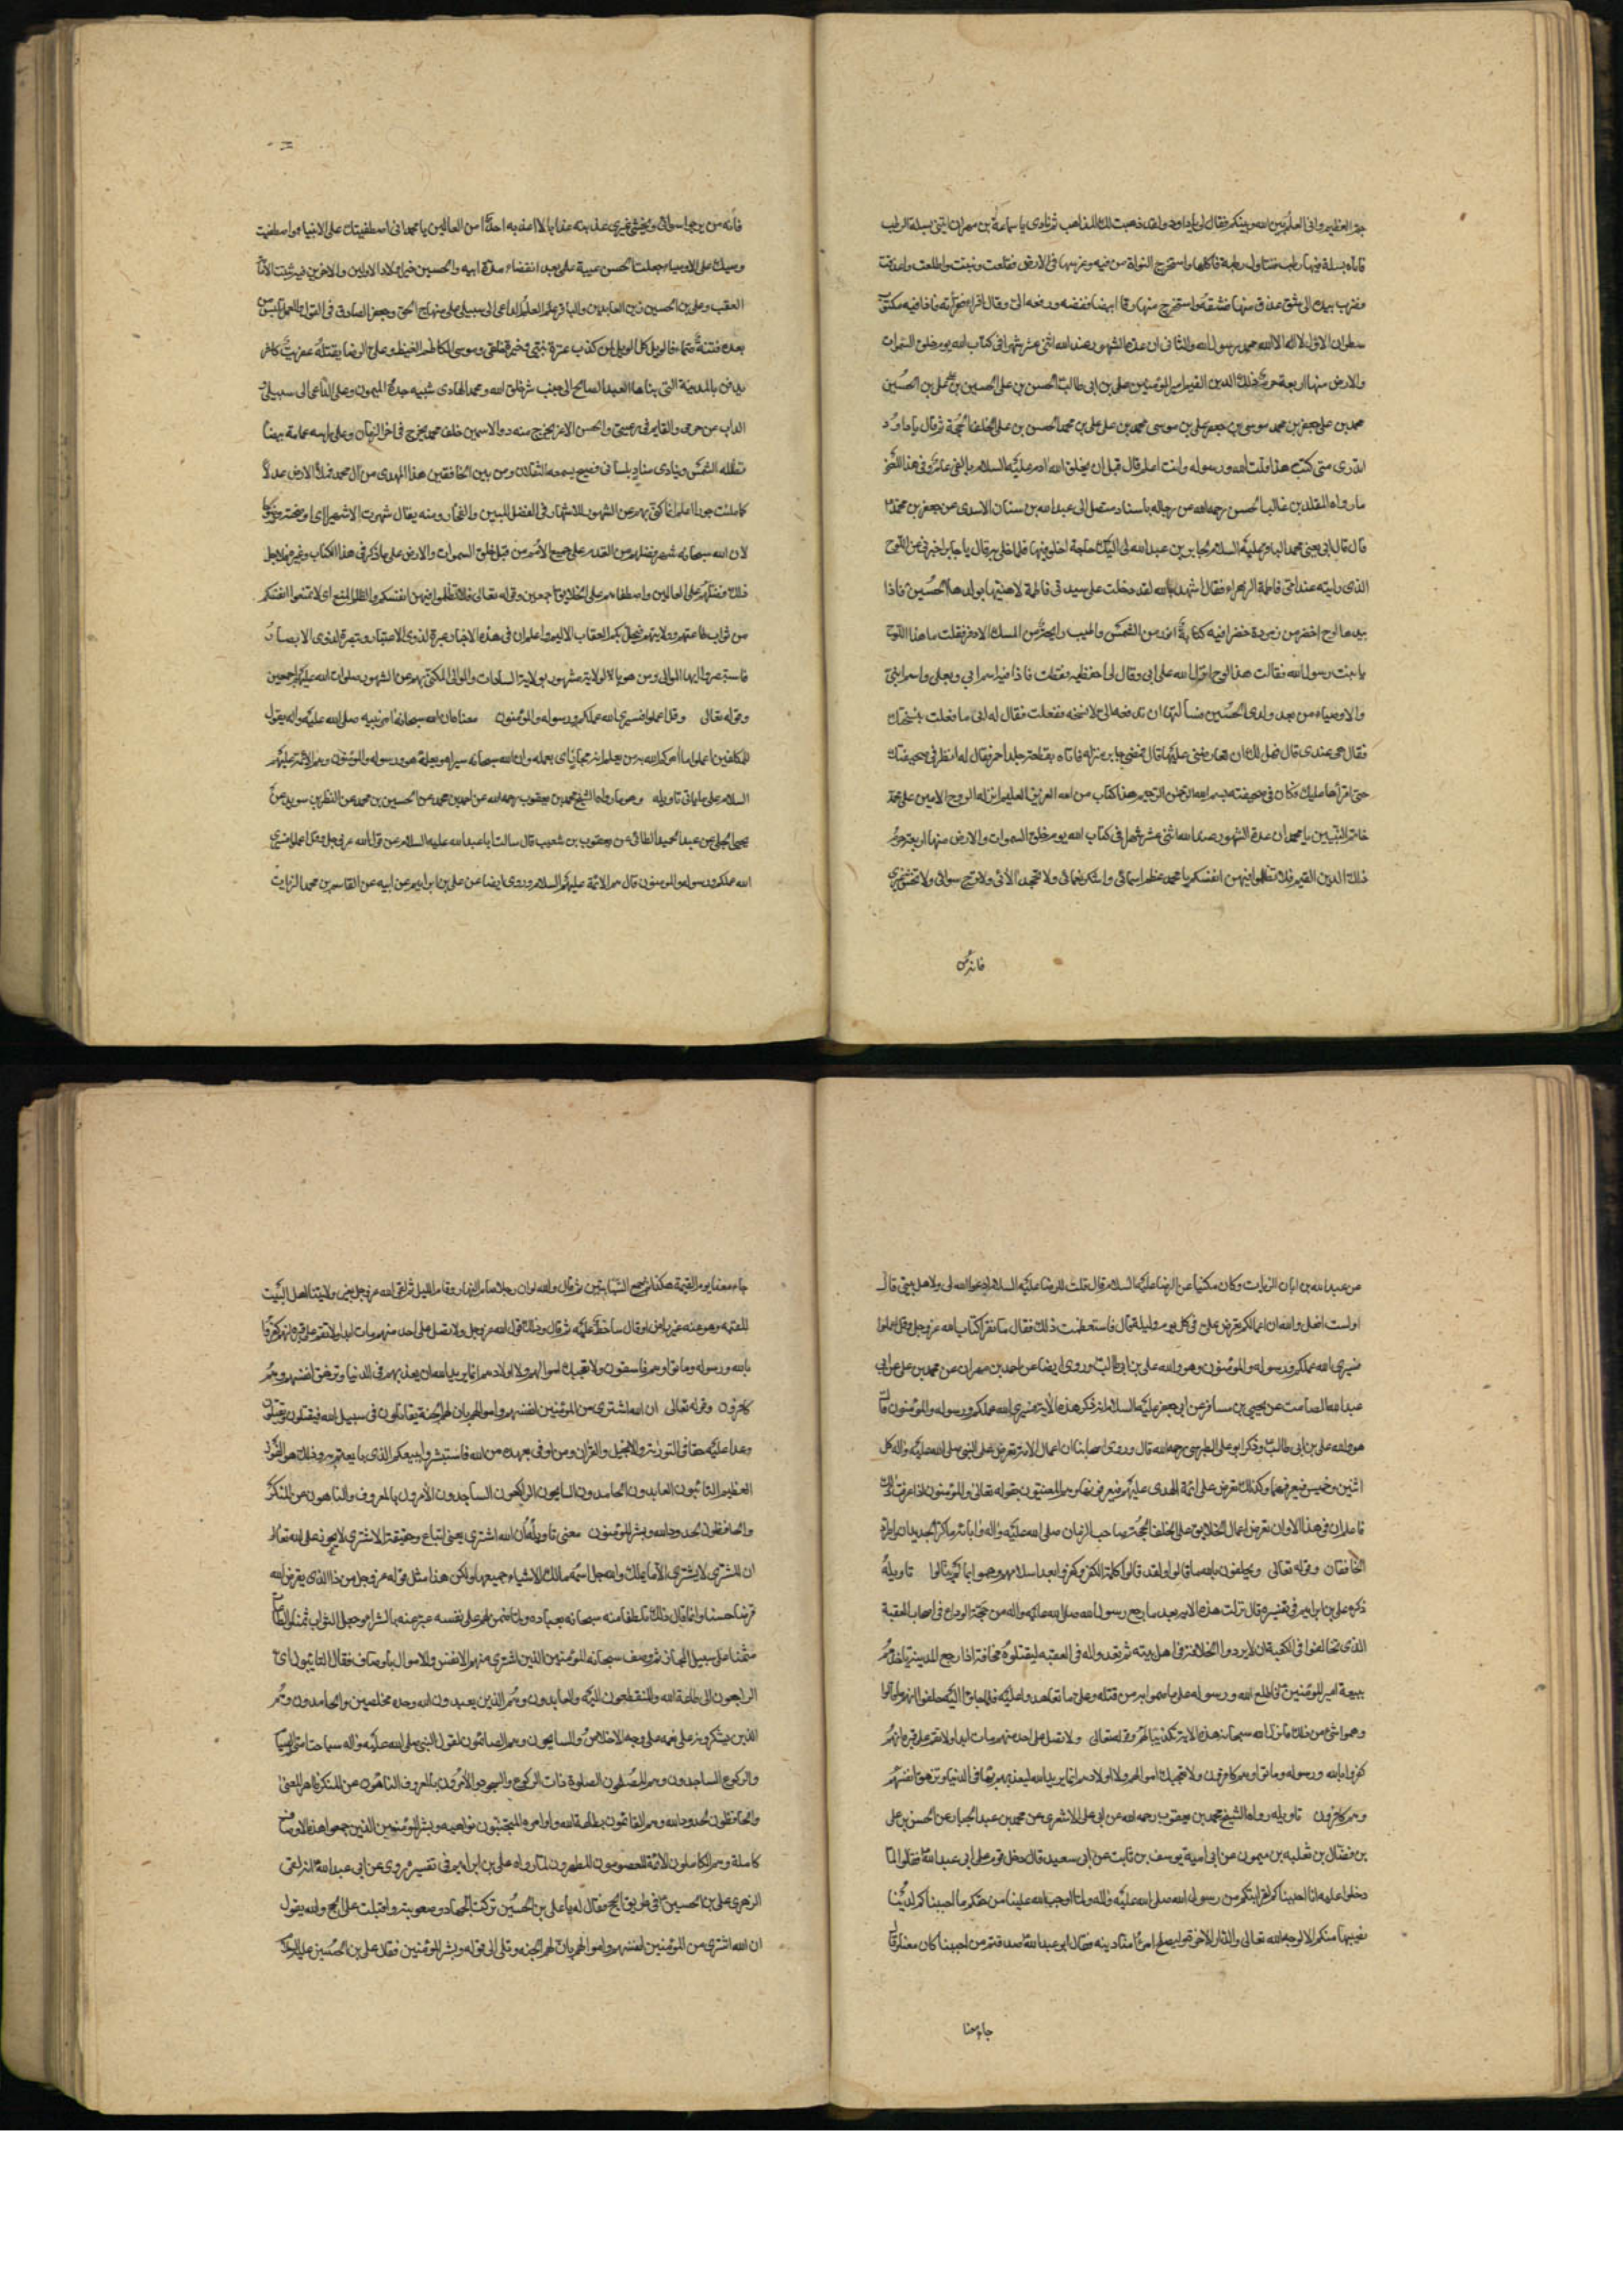 جر العظيم وانى العلم بين الله وبينكم فقال لى يا داود لقد ذهبت بك المذاهب ثم نادى يا سماعة بن مهران ايتنى بسلة الرطب
فاتاه بسلة فيها رطب فتناول رطبة فاكلها واستخرج النواة من فيه وغرسها فى الارض ففلقت ونبتت واطلعت واعذقت
فضرب بيده الى شق عذق منها فشقه واستخرج منها رقا ابيضا ففضه ودفعه الى وقال اقراه فقراته فاذا فيه مكتوب
سطران الاول لا اله الا الله محمد رسول الله والثانى ان عدة الشهور عند الله اثنى عشر شهرا فى كتاب الله يوم خلق السموات
والارض منها اربعة حرم ذلك الدين القيم امير المؤمنين على بن ابى طالب الحسن بن على الحسين بن على على بن الحسين
محمد بن على جعفر بن محمد موسى بن جعفر على بن موسى محمد بن على على بن محمد الحسن بن على الخلف الحجة ثم قال يا داود
اتدرى متى كتب هذا قلت الله ورسوله وانت اعلم قال قبل ان يخلق الله ادم عليه السلام بالفى عام وفى هذا المعنى
ما رواه المقلد بن غالب الحسن رحمه الله عن رجاله باسناد متصل الى عبد الله بن سنان الاسدى عن جعفر بن محمد
قال قال ابى يعنى محمد الباقر عليه السلام لجابر بن عبد الله لى اليك حاجة اخلو فيها فلما خلى به قال يا جابر اخبرنى عن اللوح
الذى رايته عند امى فاطمة الزهراء فقال اشهد بالله لقد دخلت على سيدتى فاطمة لاهنيها بولدها الحسين فاذا
بيدها لوح اخضر من زمردة خضرا فيه كتابة انور من الشمس واطيب رايحة من المسك الاذفر فقلت ما هذا اللوح
يا بنت رسول الله فقالت هذا لوح انزله الله على ابى وقال لى احفظيه ففعلت فاذا فيه اسم ابى وبعلى واسم ابنى
والاوصياء من بعد ولدى الحسين فسالتها ان تدفعه الى لانسخه ففعلت فقال له ابى ما فعلت بنسختك
فقال هى عندى قال فهل لك ان تعارضنى عليها قال فمضى جابر الى منزله فاتاه بقطعة جلد احمر فقال له انظر فى صحيفتك
حتى اقراها عليك فكان فى صحيفته بسم الله الرحمن الرحيم هذا كتاب من الله العزيز العليم انزله الروح الامين على محمد
خاتم النبيين يا محمد ان عدة الشهور عند الله اثنى عشر شهرا فى كتاب الله يوم خلق السموات والارض منها اربعة حرم
ذلك الدين القيم فلا تظلموا فيهن انفسكم يا محمد عظم اسمائى واشكر نعمائى ولا تجحد الائى ولا ترج سوائى ولا تخش غيرى
فانه من
فانه من يرجو سوائى ويخشى غيرى اعذبه عذابا لا اعذبه احدا من العالمين يا محمد انى اصطفيتك على الانبياء واصطفيت
وصيك على الاوصياء وجعلت الحسن عيبة علمى بعد انقضاء مدة ابيه والحسين خير اولاد الاولين والاخرين فيه تثبت الامامة
العقب وعلى بن الحسين زين العابدين والباقر العلم الداعى الى سبيلى على منهاج الحق وجعفر الصادق فى القول والعمل تلبس من
بعده فتنة صماء فالويل كل الويل لمن كذب عترة نبيى وخيرة خلقى وموسى الكاظم الغيظ وعلى الرضا يقتله عفريت كافر
يدفن بالمدينة التى بناها العبد الصالح الى جنب شر خلق الله ومحمد الهادى شبيه جده الميمون وعلى الداعى الى سبيلى
الذاب عن حرمى والقايم فى رعيتى والحسن الاغر يخرج منه ذو الاسمين خلف محمد يخرج فى اخر الزمان وعلى راسه عمامة بيضا
تظله الشمس وينادى مناد بلسان فصيح يسمعه الثقلان ومن بين الخافقين هذا المهدى من ال محمد يملا الارض عدلا
كما ملئت جورا اعلم انما كنى بهم عن الشهور للاشتهار فى الفضل المبين والفخار ومنه يقال شهرت الامر شهرا اى اوضحته
لان الله سبحانه شهر فضلهم من القدم على جميع الامم من قبل خلق السموات والارض على ما ذكر فى هذا الكتاب وغيره فلاجل
ذلك فضلهم على العالمين واصطفاهم على الخلايق اجمعين وقوله تعالى فلا تظلموا فيهن انفسكم والظلم المنع اى لا تمنعوا انفسكم
من ثواب طاعتهم وولايتهم فيحل بكم العقاب الاليم واعلم ان فى هذه الاخبار عبرة لذوى الاعتبار وتبصرة لذوى الابصار
فاستبصروا ايها الموالى ومن هو بالولاية مشهور بولاية السادات والموالى المكنى بهم عن الشهور صلوات الله عليهم اجمعين
وقوله تعالى وقل اعملوا فسيرى الله عملكم ورسوله والمؤمنون معناه ان الله سبحانه امر نبيه صلى الله عليه واله يقول
للمكلفين اعملوا ما امركم الله به من يعلم انه مجازى بعمله وان الله سبحانه سيراه ويعلمه هو ورسوله والمؤمنون وهم الائمة عليهم
السلام على ما ياتى تاويله وهو ما رواه الشيخ محمد بن يعقوب رحمه الله عن احمد بن محمد عن الحسين بن محمد عن النظر بن سويد عن
يحيى الحلبى عن عبد الحميد الطائى عن يعقوب بن شعيب قال سالت ابا عبد الله عليه السلام عن قول الله عز وجل وقل اعملوا فسيرى
الله عملكم ورسوله والمومنون قال هم الائمة عليهم السلام وروى ايضا عن على بن ابراهيم عن ابيه عن القاسم بن محمد الزيات
عن عبد الله بن ابان الزيات وكان مكينا عن الرضا عليه السلام قال قلت للرضا عليه السلام ادعو الله لى ولاهل بيتى قال
اولست افعل والله ان اعمالكم تعرض على فى كل يوم وليلة قال فاستعظمت ذلك فقال ما تقرا كتاب الله عز وجل وقل اعملوا
فسيرى الله عملكم ورسوله والمؤمنون وهو والله على بن ابى طالب وروى ايضا عن احمد بن مهران عن محمد بن على عن ابى
عبد الله الصامت عن يحيى بن مسافر عن ابى جعفر عليه السلام انه ذكر هذه الاية فسيرى الله عملكم ورسوله والمؤمنون قال
هو والله على بن ابى طالب وذكر ابو على الطبرسى رحمه الله قال وروى اصحابنا ان اعمال الامة تعرض على النبى صلى الله عليه واله كل
اثنين وخميس فيعرفها وكذلك تعرض على ائمة الهدى عليهم فيعرفونها وهم المعنيون بقوله تعالى والمؤمنون اذا عرفت ذلك
فاعلم ان فى هذا الاوان تعرض اعمال الخلايق على الخلف الحجة صاحب الزمان صلى الله عليه واله وابائه ما كر الجديدان واطرد
الخافقان وقوله تعالى ويحلفون بالله ما قالوا ولقد قالوا كلمة الكفر وكفروا بعد اسلامهم وهموا بما لم ينالوا تاويله
ذكره على بن ابراهيم فى تفسيره قال نزلت هذه الاية بعد ما رجع رسول الله صلى الله عليه واله من حجة الوداع فى اصحاب العقبة
الذى تحالفوا فى الكعبة ان لا يردوا الخلافة فى اهل بيته ثم قعدوا له فى العقبة ليقتلوه مخافة اذا رجع المدينة ياخذهم
ببيعة امير المؤمنين فاطلع الله ورسوله على ما هموا به من قتله وعلى ما تعاهدوا عليه فلما جاؤا اليه حلفوا انهم لم قالوا
وهموا شئ من ذلك فانزل الله سبحانه هذه الاية تكذيبا لهم وقوله تعالى ولا تصل على احد منهم مات ابدا ولا تقم على قبره انهم
كفروا بالله ورسوله وماتوا وهم كافرون ولا تعجبك اموالهم ولا اولادهم انما يريد الله ليعذبهم بها فى الدنيا وتزهق انفسهم
وهم كافرون تاويله رواه الشيخ محمد بن يعقوب رحمه الله عن ابى على الاشعرى عن محمد بن عبد الجبار عن الحسن بن على
بن فضال بن ثعلبه بن ميمون عن ابى امية يوسف بن ثابت عن ابى سعيد قال دخل قوم على ابى عبد الله فقالوا لما
دخلوا عليه انا احببناكم لقرابتكم من رسول الله صلى الله عليه واله ولما اوجب الله علينا من حقكم ما احببناكم لدنيا
نصيبها منكم الا لوجه الله تعالى والدار الاخرة وليصلح امرئ منا دينه فقال ابو عبد الله صدقتم من احبنا كان معنا وقال
جاء معنا
جاء معنا يوم القيمة هكذا ثم جمع السبابتين ثم قال والله لو ان رجلا صام النهار وقام الليل ثم لقى الله عز وجل بغير ولايتنا اهل البيت
للقيه وهو عنه غير راض او قال ساخط عليه ثم قال وذلك قول الله عز وجل ولا تصل على احد منهم مات ابدا ولا تقم على قبره انهم كفروا
بالله ورسوله وماتوا وهم فاسقون ولا تعجبك اموالهم ولا اولادهم انما يريد الله ان يعذبهم فى الدنيا وتزهق انفسهم وهم
كافرون وقوله تعالى ان الله اشترى من المؤمنين انفسهم واموالهم بان لهم الجنة يقاتلون فى سبيل الله فيقتلون ويقتلون
وعدا عليه حقا فى التورية والانجيل والقران ومن اوفى بعهده من الله فاستبشروا ببيعكم الذى بايعتم به وذلك هو الفوز
العظيم التائبون العابدون الحامدون السايحون الراكعون الساجدون الامرون بالمعروف والناهون عن المنكر
والحافظون لحدود الله وبشر المؤمنون معنى تاويله ان الله اشترى يعنى ابتاع وحقيقة الاشترى لا يجوز على الله تعالى
ان المشترى لا يشترى الا ما يملك والله جل اسمه مالك الاشياء جميعها ولكن هذا مثل قوله عز وجل من ذا الذى يقرض الله
قرضا حسنا وانما قال ذلك تلطفا منه سبحانه بعباده ولما ضمن لهم على نفسه عبر عنه بالشرا وجعل الثواب ثمنا والطاعات
مثمنا على سبيل المجاز ثم وصف سبحانه المؤمنين الذين اشترى منهم الانفس والاموال باوصاف فقال التايبون اى
الراجعون الى طاعة الله والمنقطعون اليه والعابدون وهم الذين يعبدون الله وحده مخلصين والحامدون وهم
الذين يشكرونه على نعمه على وجه الاخلاص والسايحون وهم الصائمون لقول النبى صلى الله عليه واله سياحة امتى الصيام
والركوع الساجدون وهم المصلون الصلوة ذات الركوع والسجود والامرون بالمعروف الناهون عن المنكر ظاهر المعنى
والحافظون لحدود الله وهم القائمون بطاعة الله واوامره المجتنبون نواهيه وبشر المؤمنين الذين جمعوا هذه الاوصاف
كاملة وهم الكاملون الائمة المعصومون المطهرون لما رواه على بن ابراهيم فى تفسيره روى عن ابى عبد الله انه لقى
الزهرى على بن الحسين فى طريق الحج فقال له يا على بن الحسين تركت الجهاد وصعوبته واقبلت على الحج والله يقول
ان الله اشترى من المؤمنين انفسهم واموالهم بان لهم الجنة وتلى الى قوله وبشر المؤمنين فقال على بن الحسين عليه